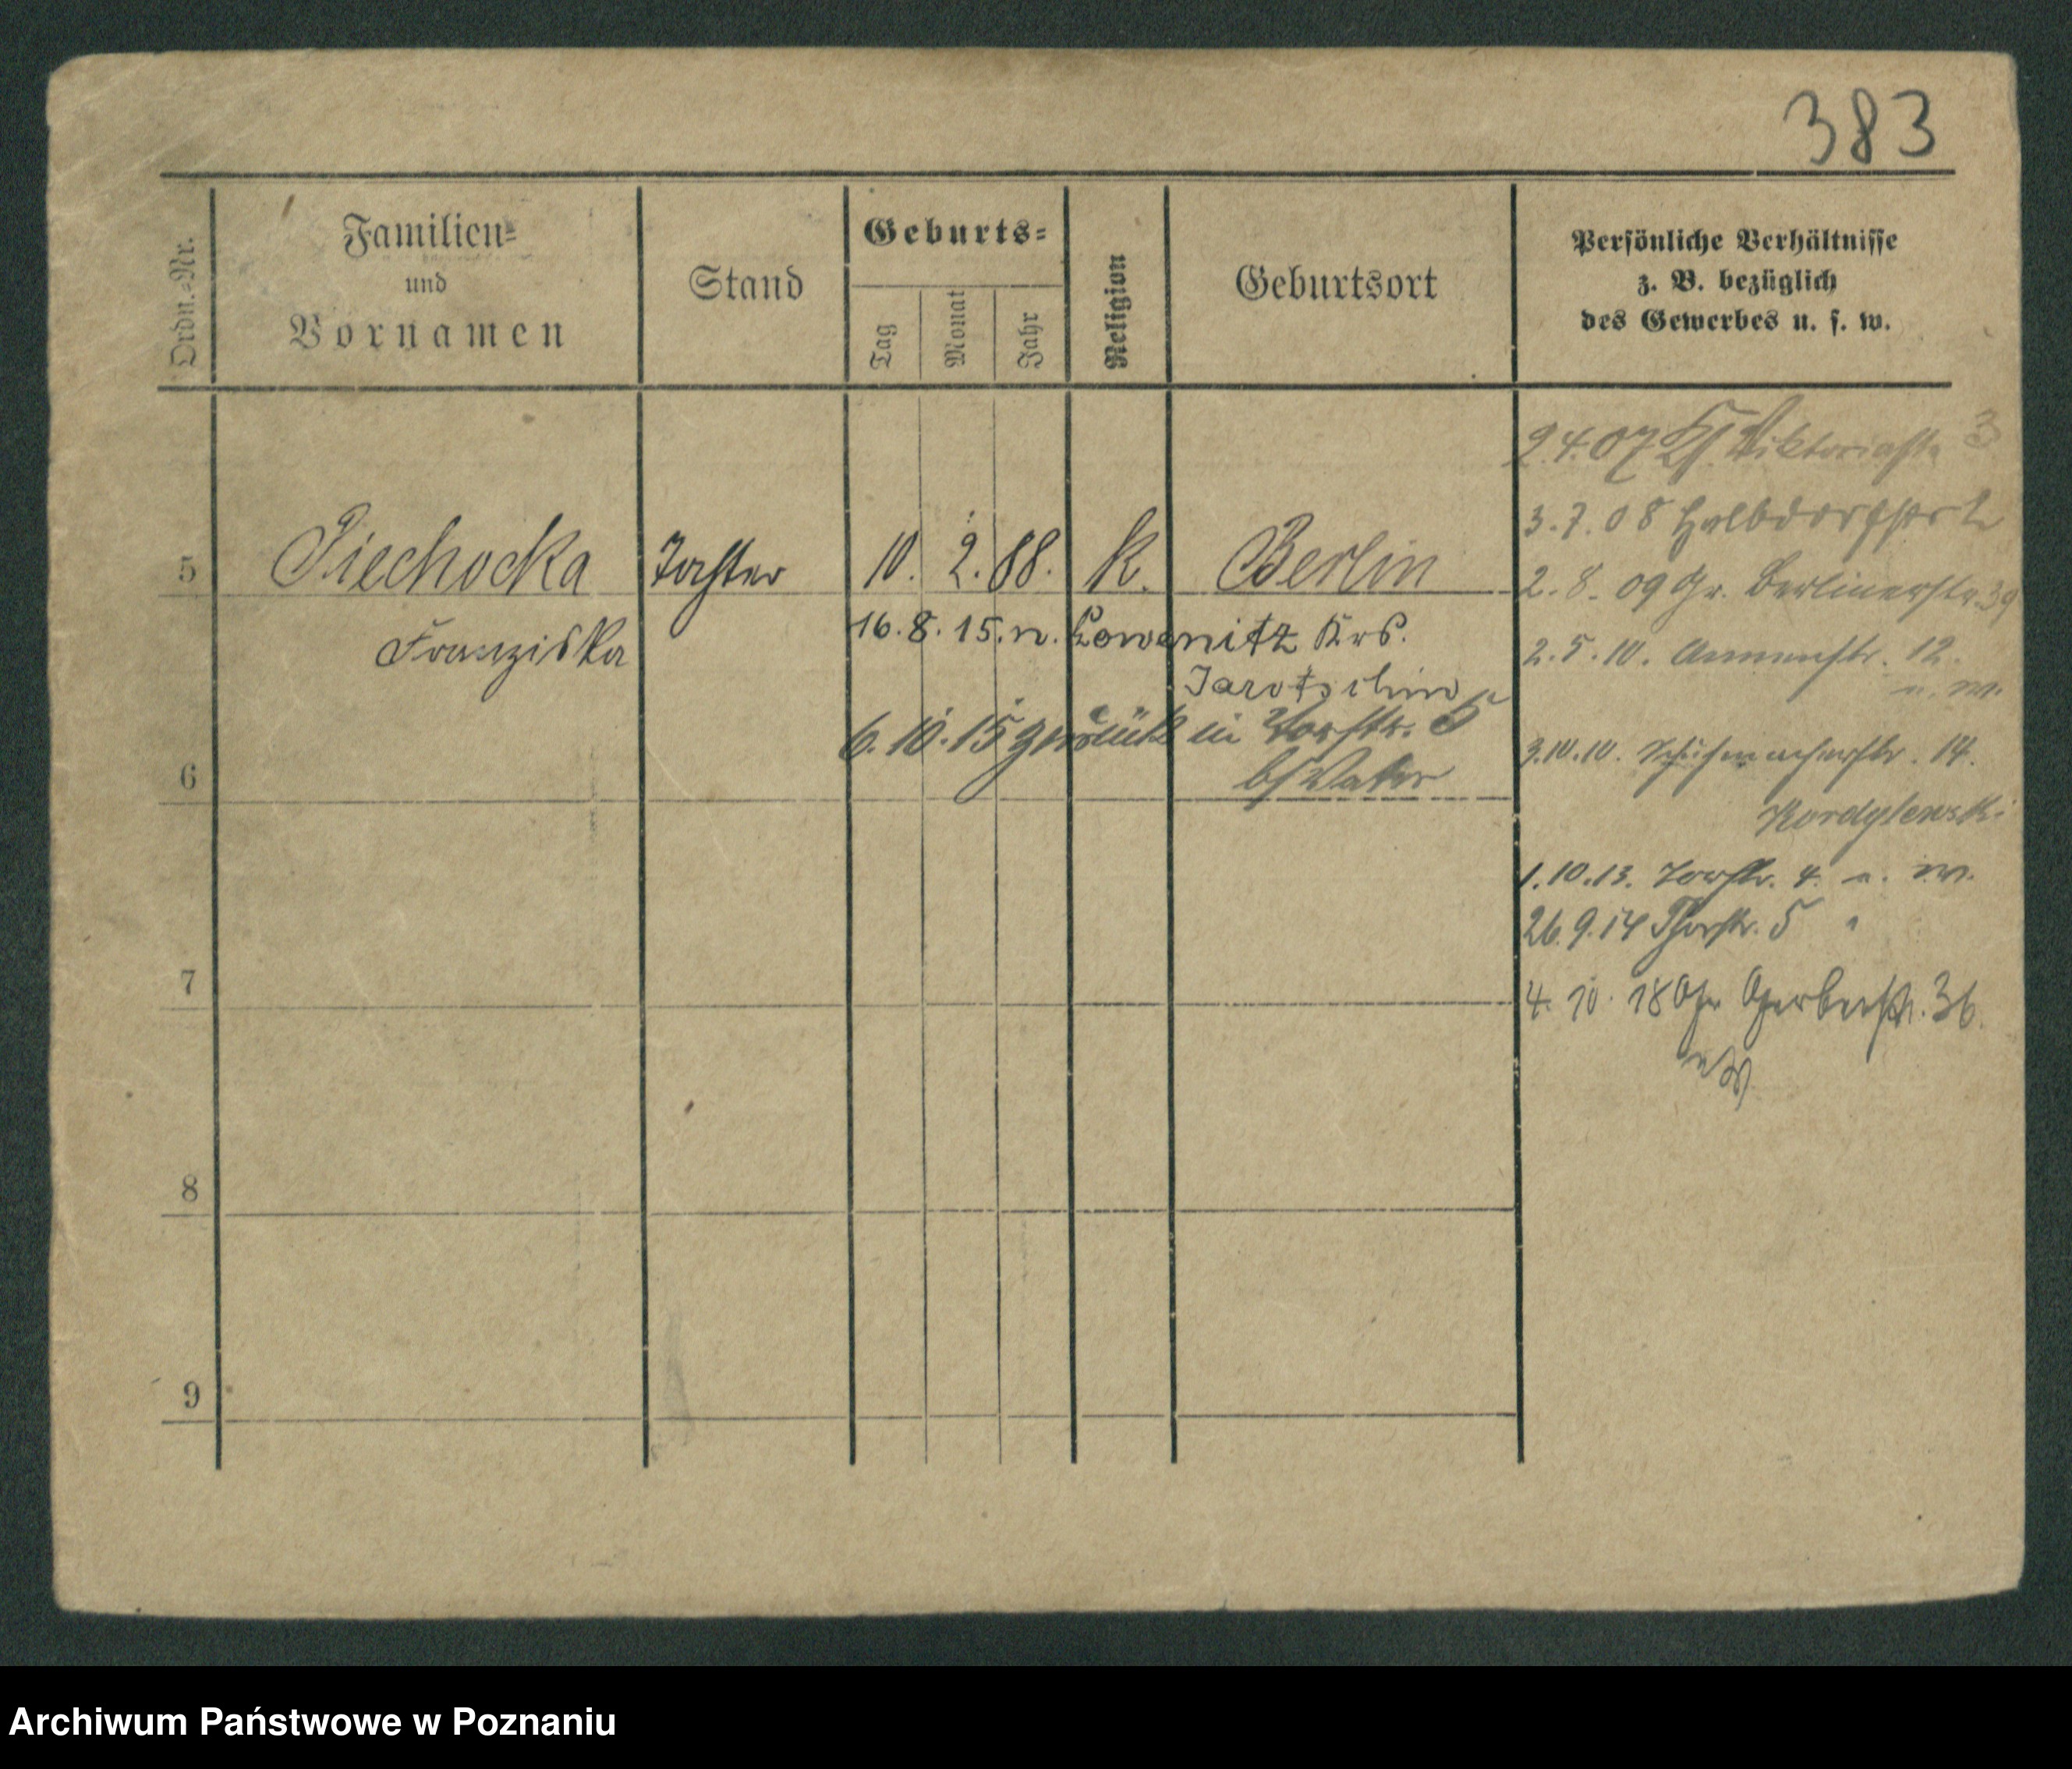 383
Ordn.-Nr.
Familien-
und
Vornamen
Stand
Geburts-
Tag
Monat
Jahr
Religion
Geburtsort
Persönliche Verhältnisse
z. B. bezüglich
des Gewerbes u. s. w.
5
Piechocka
Franziska
Tochter
10. 2. 88.
k.
Berlin
16. 8. 15. n. Lowenitz Krs.
Jarotschin
6. 10. 15 zurück in Torstr. 5
b/ Vater
2.4.07 Viktoriastr 3
3. 7. 08 Halbdorfstr
2. 8. 09 Gr. Berlinerstr. 39
2. 5. 10. Annenstr. 12.
u. W.
3.10.10. Schuhmacherstr. 14.
Kordylewski
1. 10. 13. Torstr. 4. u. W.
26. 9. 14 Thorstr. 5 "
4. 10. 18 Gr Gerberstr. 36.
u W
6
7
8
9
Archiwum Państwowe w Poznaniu